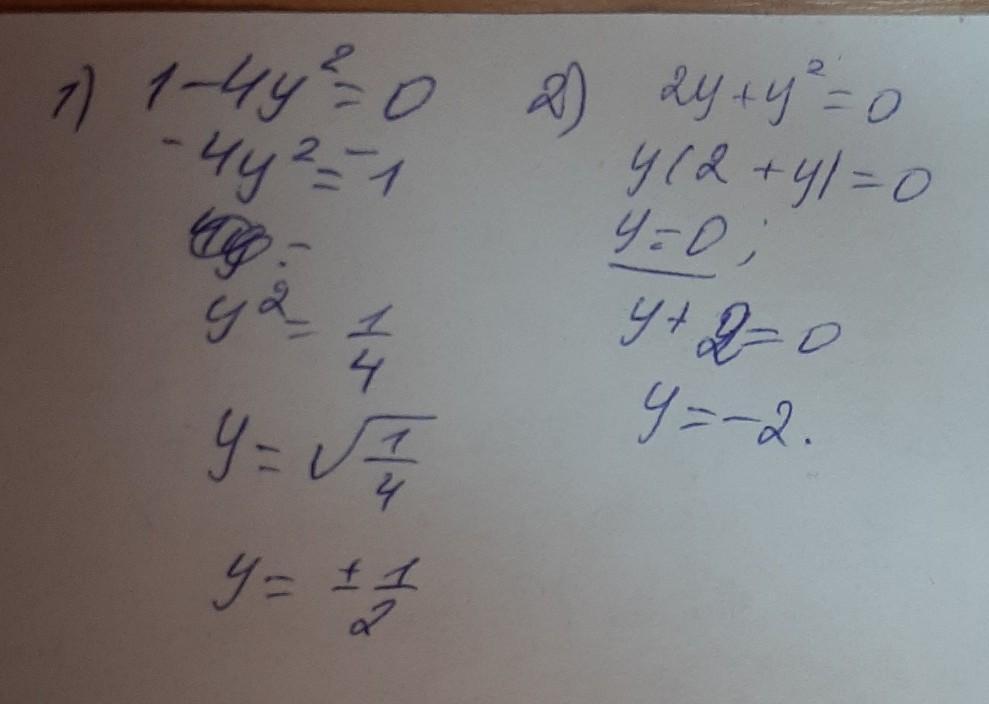 1) 1-4y²=0
-4y²=-1
y²= 1/4
y= √1/4
y= ±1/2
2) 2y+y²=0
y(2+y)=0
y=0;
y+2=0
y=-2.